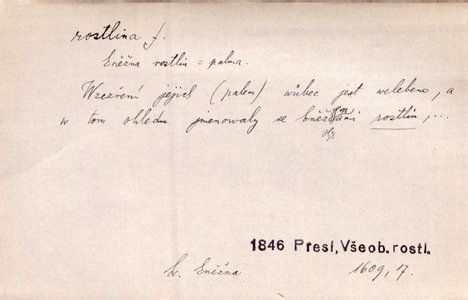 rostlina f.
Kněžna rostlin = palma.
Wzezření jejich (palem) wůbec jest welebené, a
w tom ohledu jmenowaly se kněžnami rostlin, ...
1846 Presl, Všeob. rostl.
kněžna 1609, 17.